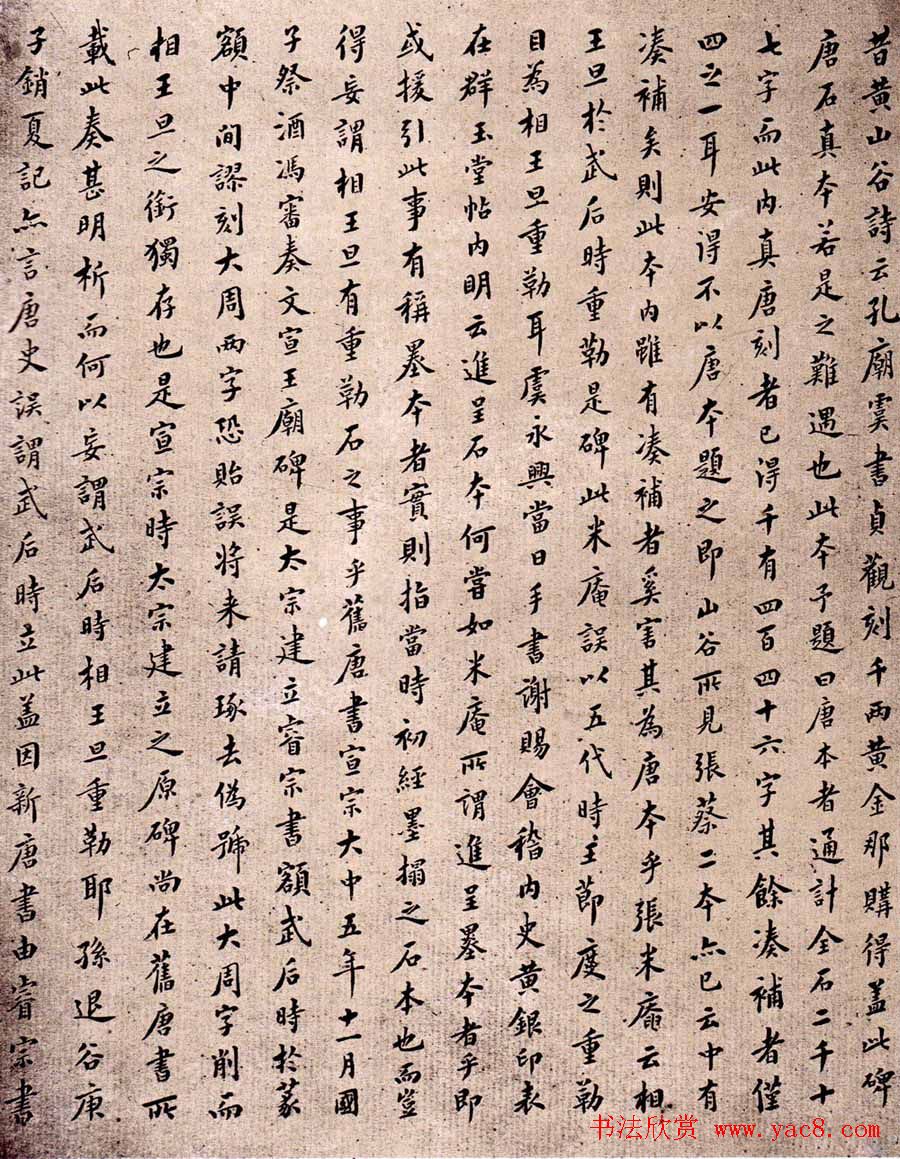 昔黄山谷詩云孔廟虞書貞觀刻千兩黄金那購得蓋此碑
唐石真本若是之難遇也此本予題曰唐本者通計全石二千十
七字而此内真唐刻者已得千有四百四十六字其餘凑補者僅
四之一耳安得不以唐本題之即山谷所見張蔡二本亦已云中有
凑補矣則此本内雖有凑補者奚害其為唐本乎張米庵云相
王旦於武后時重勒是碑此米庵誤以五代時主節度之重勒
目為相王旦重勒耳虞永興當日手書謝賜會稽内史黄銀印表
在群玉堂帖内明云進呈石本何嘗如米庵所謂進呈墨本者乎即
或援引此事有稱墨本者實則指當時初經墨搨之石本也而豈
得妄謂相王旦有重勒石之事乎舊唐書宣宗大中五年十一月國
子祭酒馮審奏文宣王廟碑是太宗建立睿宗書額武后時於篆
額中間謬刻大周兩字恐貽誤将来請琢去偽號此大周字削而
相王旦之銜獨存也是宣宗時太宗建立之原碑尚在舊唐書所
載此奏甚明析而何以妄謂武后時相王旦重勒耶孫退谷庚
子銷夏記亦言唐史誤謂武后時立此蓋因新唐書由睿宗書
书法欣赏 www.yac8.com